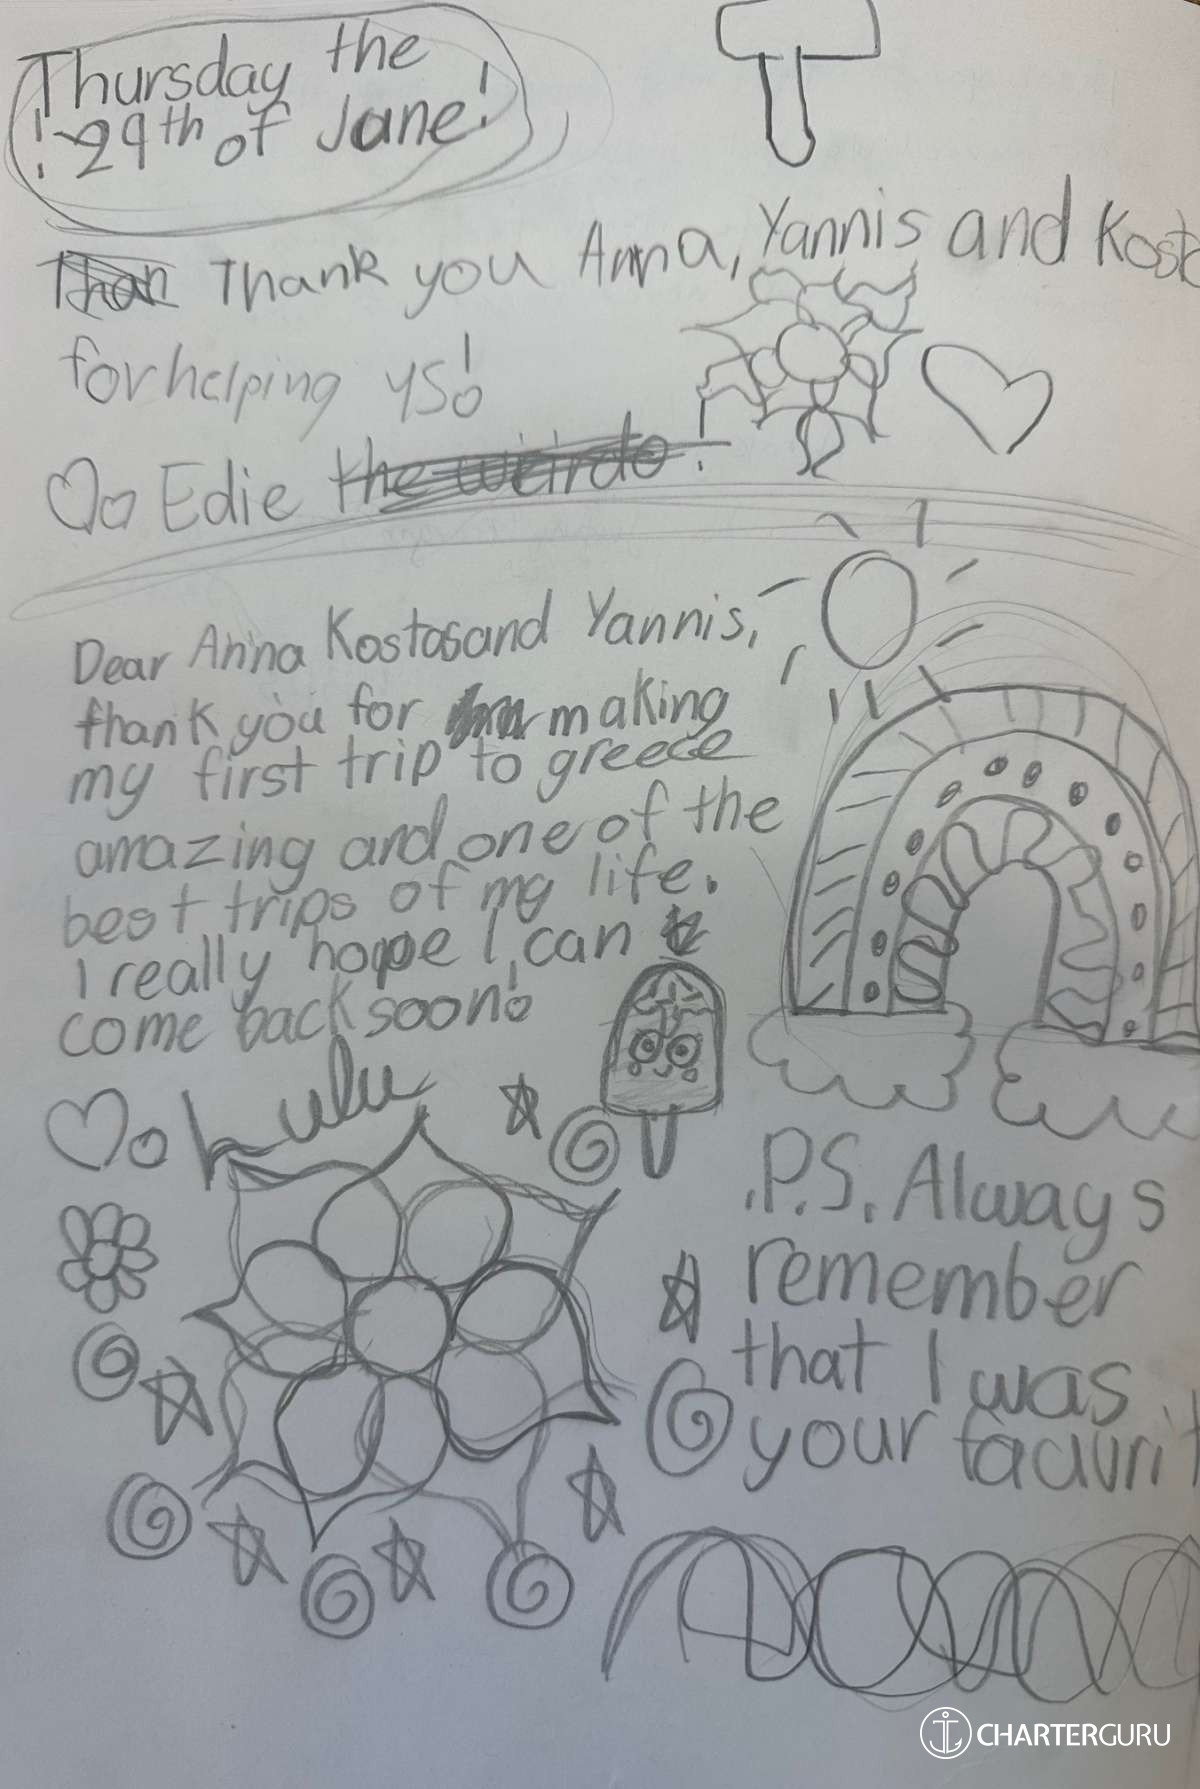 Thursday the
! 29th of Jane!
Than Thank you Anna, Yannis and Kosta
for helping ys!
Edie the weirdo!
Dear Anna Kostas and Yannis,
thank you for making
my first trip to greece
amazing and one of the
best trips of my life.
I really hope I can
come back soon!
Lulu
.P.S. Always
remember
that I was
your favurit
CHARTERGURU